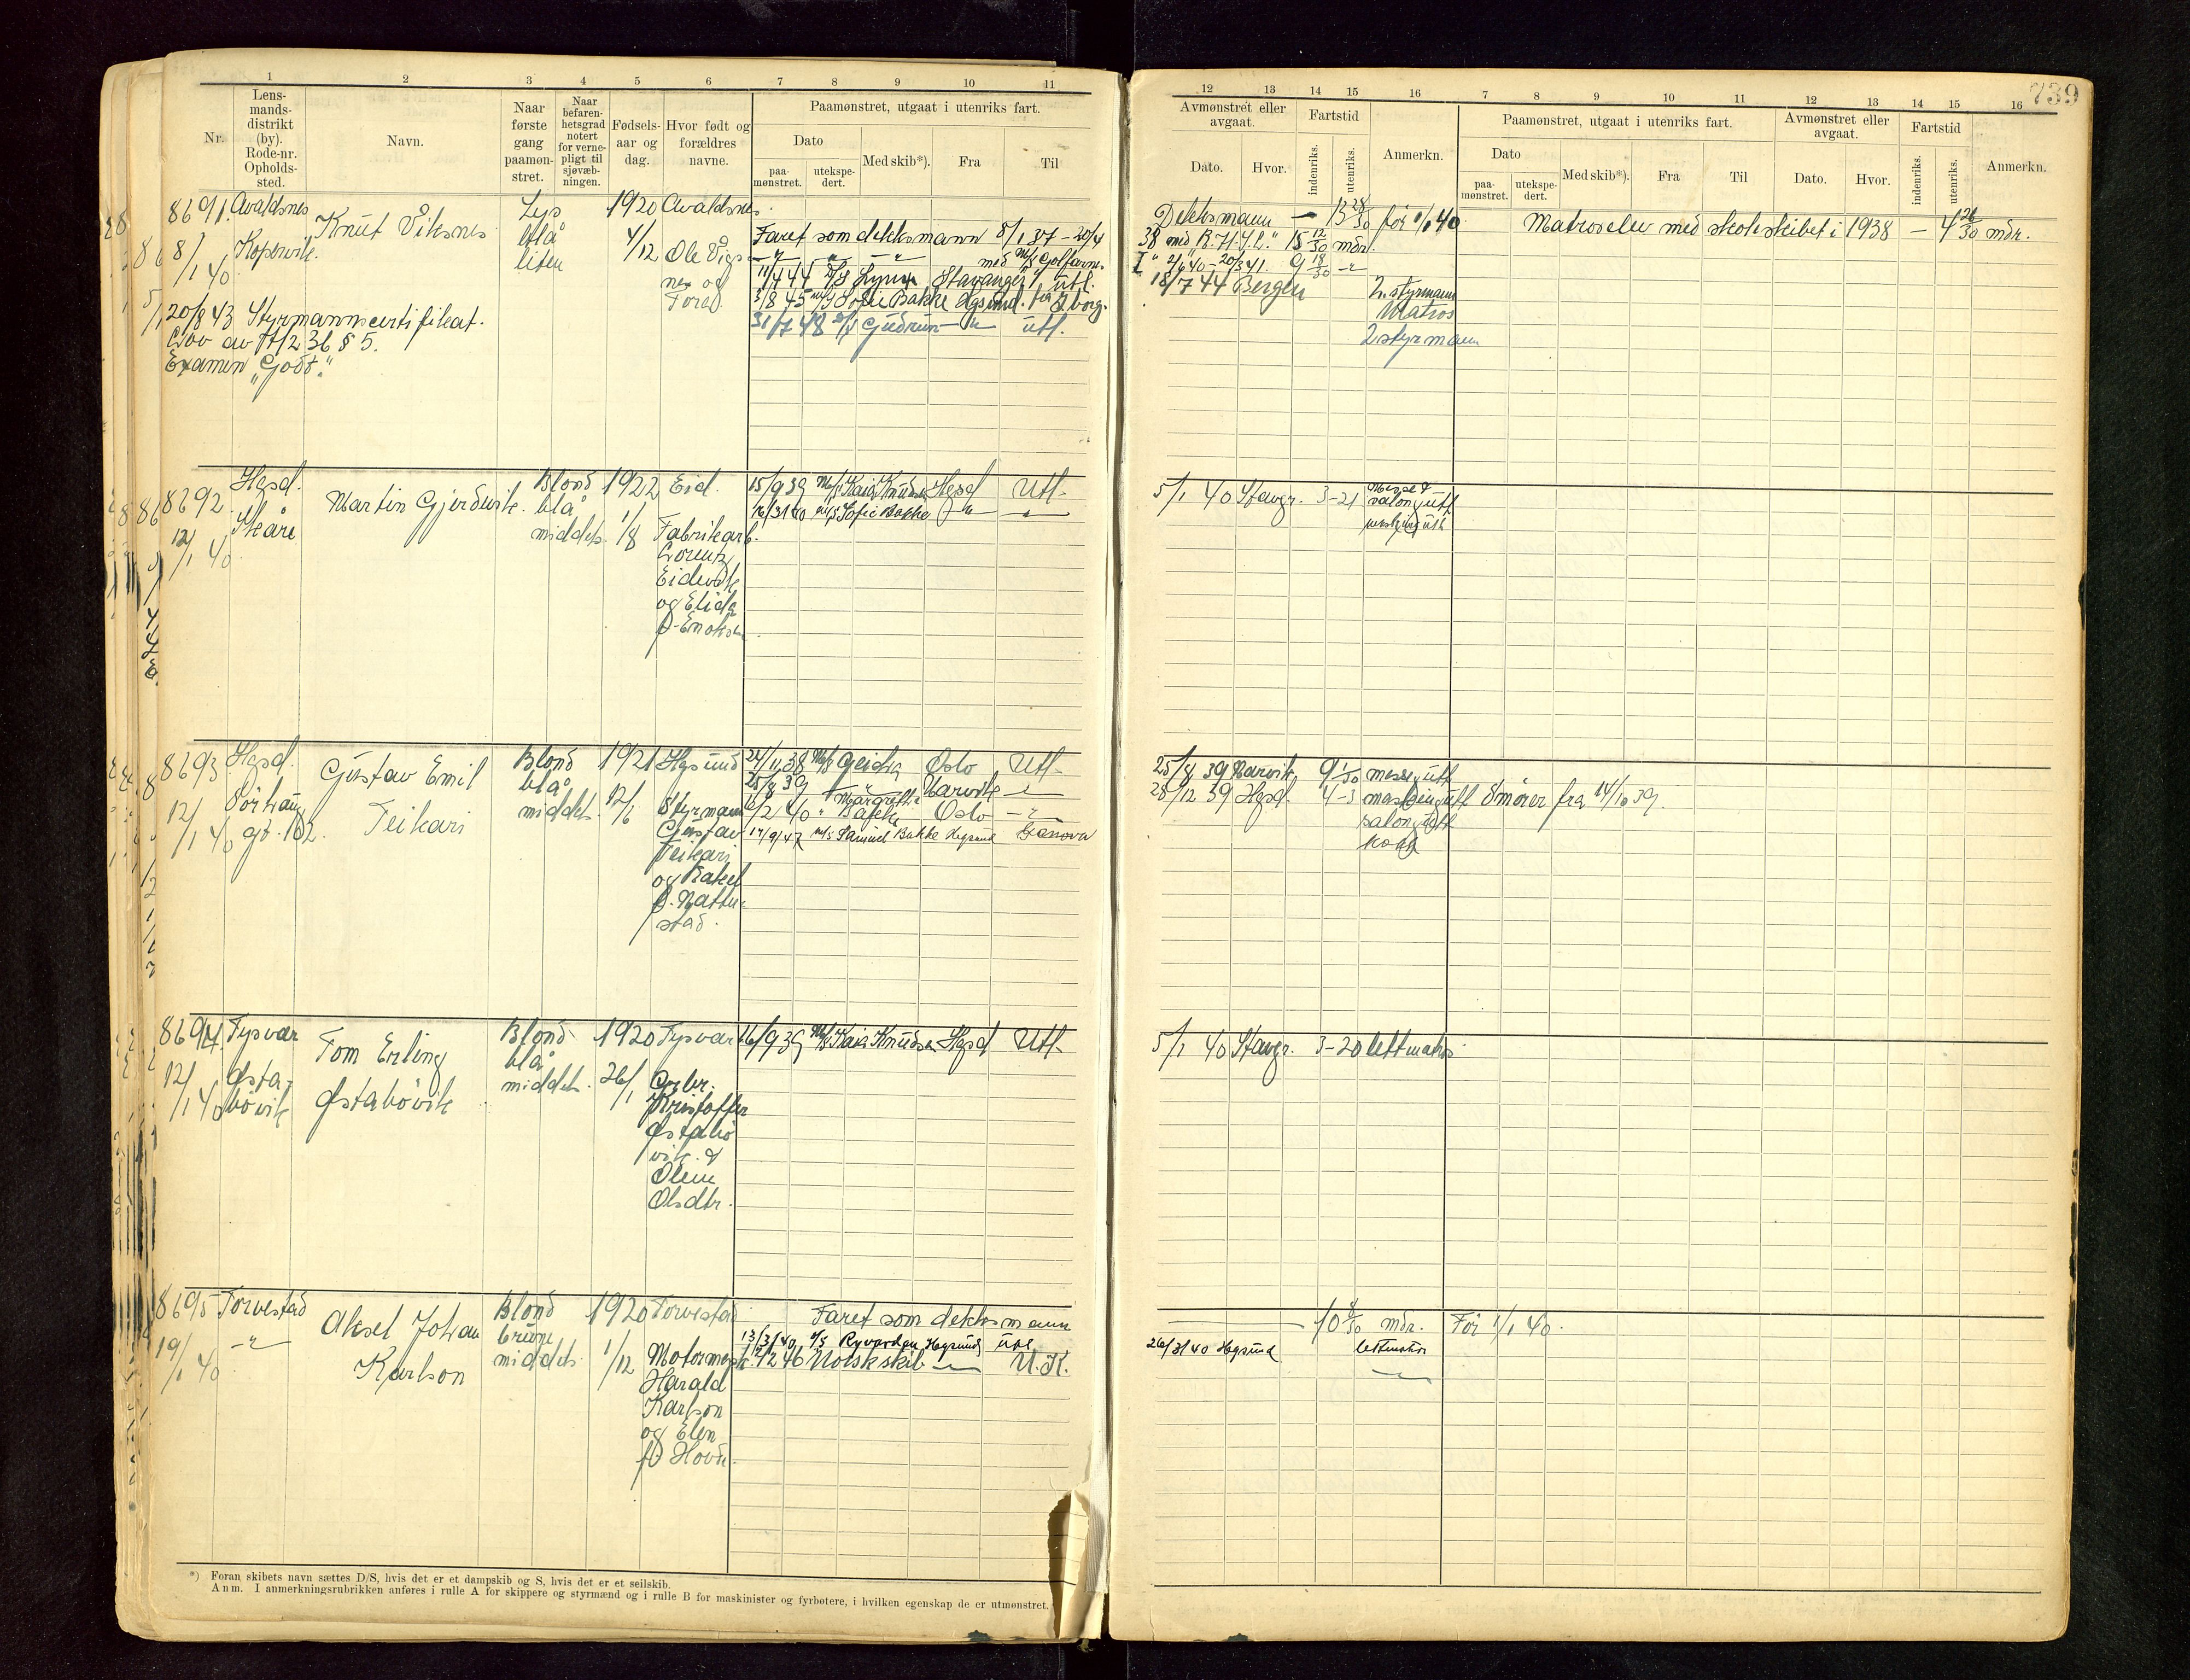 739
1 2 3 4 5 6 7 8 9 10 11
Nr.
Lens-
mands-
distrikt
(by).
Rode-nr.
Opholds-
sted.
Navn.
Naar
første
gang
paamøn-
stret.
Naar
befaren-
hetsgrad
notert
for verne-
pligt til
sjøvæb-
ningen.
Fødsels-
aar og
dag.
Hvor født og
forældres
navne.
Paamønstret, utgaat i utenriks fart.
Dato
paa-
mønstret.
utekspe-
dert.
Med skib*).
Fra
Til
12 13 14 15 16 7 8 9 10 11 12 13 14 15 16
Avmønstret eller
avgaat.
Dato.
Hvor.
Fartstid
indenriks.
utenriks.
Anmerkn.
Paamønstret, utgaat i utenriks fart.
Dato
paa-
mønstret.
utekspe-
dert.
Med skib*).
Fra
Til
Avmønstret eller
avgaat.
Dato.
Hvor.
Fartstid
indenriks.
utenriks.
Anmerkn.
8691.
8/1 40
Avaldsnes
Kopervik.
Knut Viksnes
Lys
blå
liten
1920
4/12
Avaldsnes.
Ole Vigs-
nes og
Faret som dekksmann 8/1 37 – 20/4
med M/S Golfarne
11/4 44 D/S Lynx Stavanger utl.
3/8 45 M/S Sofie Bakke Hgsund. for Gborg.
31/7 48 Gudrun utl.
20/8 43 Styrmannscertifikat.
Lov av 17/2 36 § 5.
Examen „Godt."
Dekksmann – 13 28/30 før 1/1 40
15 12/30 mdr.
2/6 40 – 20/3 41. 9 18/30
18/7 44 Bergen
2. styrmann
Matros
2 styrmann
Matroselev med skoleskibet i 1938 – 4 26/30 mdr.
8692
12/1 40
Hgsd.
Skåre
Martin Gjerdevik.
Blond
blå
middels.
1922
1/8
Eid.
Fabrikarb.
Lorentz
Eidevik
og Elida
f. Enoksen
15/9 39 M/S Kaia Knudsen Hgsd Utl.
16/3 40 M/S Sofie Bakke
5/1 40 Stavgr. 3-21
salongutt
8693
12/1 40
Hgsd.
Sørhaug
gt. 162.
Gustav Emil
Teikari
Blond
blå
middels.
1921
12/6
Hgsund
Styrmann
Gustav
Teikari
og Rakel
f. Nattu-
stad.
24/11 38 M/S Geisha Oslo Utl.
25/8 39 Narvik
16/2 40 Margrethe Bakke Oslo
17/9/47 M/S Samuel Bakke Hgsund Genova
25/8 39 Narvik 9 1/30 messegutt
28/12 39 Hgsd. 4-3 maskingutt Smører fra 14/10 39.
salongutt
kokk
8694
12/1 40
Tysvær
Østa-
bøvik
Tom Erling
Østabøvik
Blond
blå
middels.
1920
26/1
Tysvær
Gårbr.
Kristoffer
Østabø
vik &
Olene
Olsdtr.
16/9 39 M/S Kaia Knudsen Hgsd Utl.
5/1 40 Stavgr. 3-20 lettmatros
8695
19/1 40
Torvestad
Aksel Johan
Karlson
Blond
brune
middels
1920
1/12
Torvestad
Motormask.
Harald
Karlson
og Elen
fd Hovda.
Faret som dekksmann
13/3/40 Ryvarden Hgsund utl
12 46 Norsk skib U.K.
10 8/30 mdr. Før 1/1 40.
26/3/40 Hgsund lettmatros
*) Foran skibets navn sættes D/S, hvis det er et dampskib og S, hvis det er et seilskib.
Anm. I anmerkningsrubrikken anføres i rulle A for skippere og styrmænd og i rulle B for maskinister og fyrbøtere, i hvilken egenskap de er utmønstret.